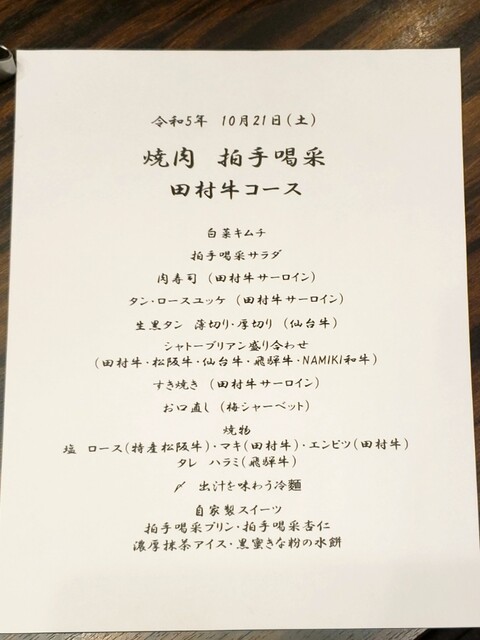 令和5年 10月21日(土)
焼肉 拍手喝采
田村牛コース
白菜キムチ
拍手喝采サラダ
肉寿司 (田村牛サーロイン)
タン・ロースユッケ (田村牛サーロイン)
生黒タン 薄切り・厚切り (仙台牛)
シャトーブリアン盛り合わせ
(田村牛・松阪牛・仙台牛・飛騨牛・NAMIKI和牛)
すき焼き (田村牛サーロイン)
お口直し (梅シャーベット)
焼物
塩 ロース(特産松阪牛)・マキ(田村牛)・エンピツ(田村牛)
タレ ハラミ(飛騨牛)
〆 出汁を味わう冷麺
自家製スイーツ
拍手喝采プリン・拍手喝采杏仁
濃厚抹茶アイス・黒蜜きな粉の水餅